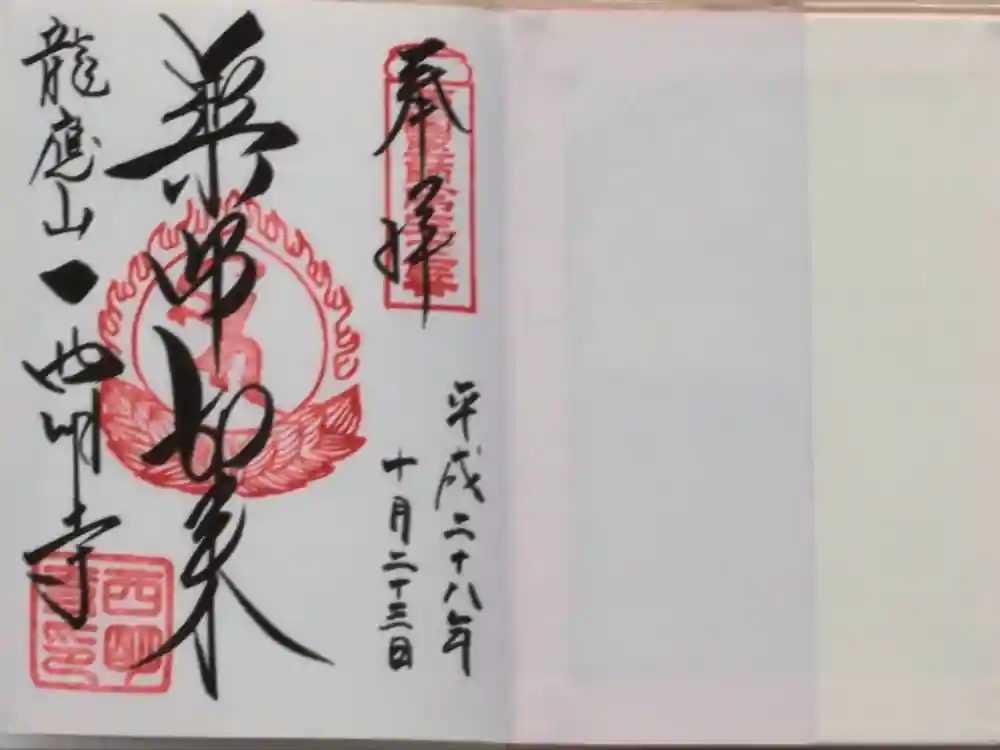 奉拝
平成二十八年
十月二十三日
薬師如来
龍應山西明寺
西明